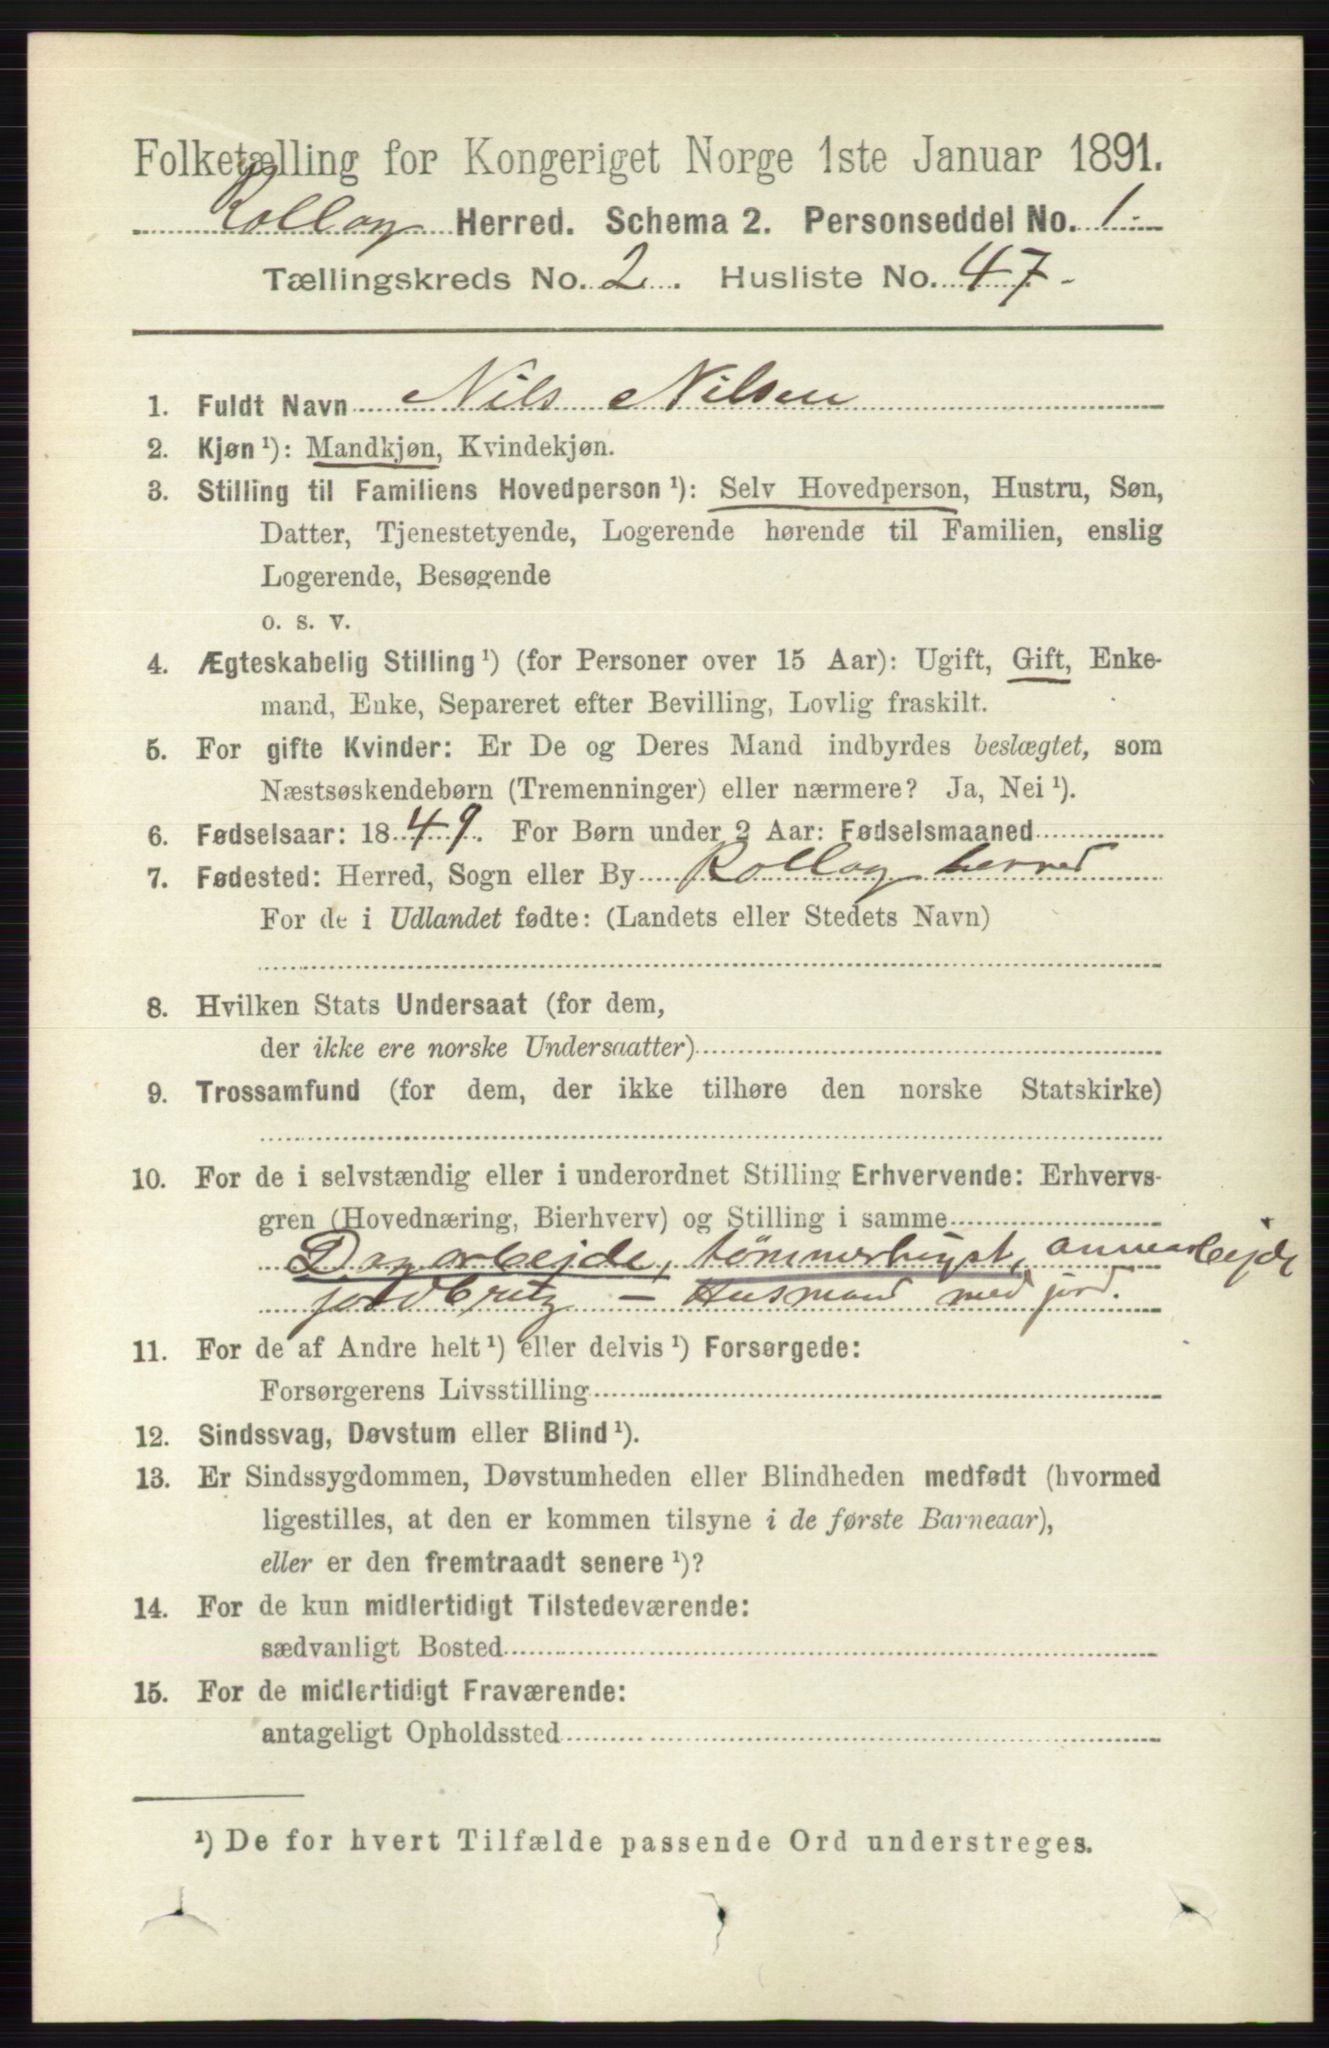 Folketælling for Kongeriget Norge 1ste Januar 1891.
Rollag Herred. Schema 2. Personseddel No. 1.
Tællingskreds No. 2. Husliste No. 47.
1. Fuldt Navn Nils Nilsen
2. Kjøn ¹): Mandkjøn, Kvindekjøn.
3. Stilling til Familiens Hovedperson ¹): Selv Hovedperson, Hustru, Søn,
Datter, Tjenestetyende, Logerende hørende til Familien, enslig
Logerende, Besøgende
o. s. v.
4. Ægteskabelig Stilling ¹) (for Personer over 15 Aar): Ugift, Gift, Enke-
mand, Enke, Separeret efter Bevilling, Lovlig fraskilt.
5. For gifte Kvinder: Er De og Deres Mand indbyrdes beslægtet, som
Næstsøskendebørn (Tremenninger) eller nærmere? Ja, Nei ¹).
6. Fødselsaar: 1849. For Børn under 2 Aar: Fødselsmaaned
7. Fødested: Herred, Sogn eller By Rollag herred
For de i Udlandet fødte: (Landets eller Stedets Navn)
8. Hvilken Stats Undersaat (for dem,
der ikke ere norske Undersaatter)
9. Trossamfund (for dem, der ikke tilhøre den norske Statskirke)
10. For de i selvstændig eller i underordnet Stilling Erhvervende: Erhvervs-
gren (Hovednæring, Bierhverv) og Stilling i samme
Dagarbejde, tømmerhugst, annearbejde
jordbrug – Husmand med jord.
11. For de af Andre helt ¹) eller delvis ¹) Forsørgede:
Forsørgerens Livsstilling
12. Sindssvag, Døvstum eller Blind ¹).
13. Er Sindssygdommen, Døvstumheden eller Blindheden medfødt (hvormed
ligestilles, at den er kommen tilsyne i de første Barneaar),
eller er den fremtraadt senere ¹)?
14. For de kun midlertidigt Tilstedeværende:
sædvanligt Bosted
15. For de midlertidigt Fraværende:
antageligt Opholdssted
¹) De for hvert Tilfælde passende Ord understreges.